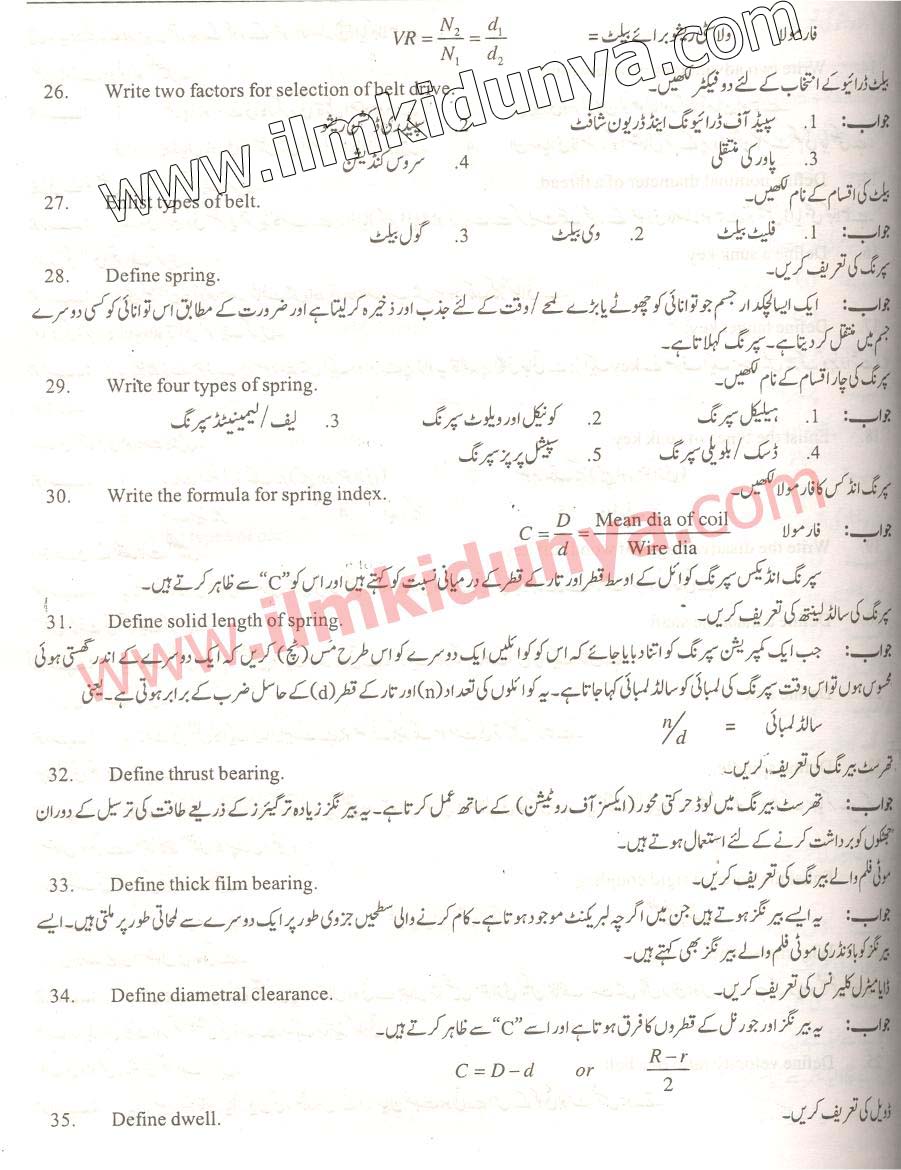 فارمولا ولاسٹی ریشو برائے بیلٹ = VR = N₂/N₁ = d₁/d₂
26. Write two factors for selection of belt drive. بیلٹ ڈرائیو کے انتخاب کے لئے دو فیکٹر لکھیں۔
جواب: 1. سپیڈ آف ڈرائیونگ اینڈ ڈریون شافٹ 2. سپیڈ ریڈکشن ریشو
3. پاور کی منتقلی 4. سروس کنڈیشن
27. Enlist types of belt. بیلٹ کی اقسام کے نام لکھیں۔
جواب: 1. فلیٹ بیلٹ 2. وی بیلٹ 3. گول بیلٹ
28. Define spring. سپرنگ کی تعریف کریں۔
جواب: ایک ایسا لچکدار جسم جو توانائی کو چھوٹے یا بڑے لمحے/وقت کے لئے جذب اور ذخیرہ کر لیتا ہے اور ضرورت کے مطابق اس توانائی کو کسی دوسرے
جسم میں منتقل کر دیتا ہے۔ سپرنگ کہلاتا ہے۔
29. Write four types of spring. سپرنگ کی چار اقسام کے نام لکھیں۔
جواب: 1. ہیلیکل سپرنگ 2. کونیکل اور ویلوٹ سپرنگ 3. لیف/لیمینیٹڈ سپرنگ
4. ڈسک/بلویلی سپرنگ 5. سپیشل پرپز سپرنگ
30. Write the formula for spring index. سپرنگ انڈکس کا فارمولا لکھیں۔
جواب: فارمولا C = D/d = Mean dia of coil/Wire dia
سپرنگ انڈیکس سپرنگ کوائل کے اوسط قطر اور تار کے قطر کے درمیانی نسبت کو کہتے ہیں اور اس کو "C" سے ظاہر کرتے ہیں۔
31. Define solid length of spring. سپرنگ کی سالڈ لینتھ کی تعریف کریں۔
جواب: جب ایک کمپریشن سپرنگ کو اتنا دبایا جائے کہ اس کو کوائلیں ایک دوسرے کو اس طرح مس (ٹچ) کریں کہ ایک دوسرے کے اندر گھستی ہوئی
محسوس ہوں تو اس وقت سپرنگ کی لمبائی کو سالڈ لمبائی کہا جاتا ہے۔ یہ کوائلوں کی تعداد (n) اور تار کے قطر (d) کے حاسل ضرب کے برابر ہوتی ہے۔ یعنی
سالڈ لمبائی = n/d
32. Define thrust bearing. تھرسٹ بیرنگ کی تعریف کریں۔
جواب: تھرسٹ بیرنگ میں لوڈ حرکتی محور (ایکسز آف روٹیشن) کے ساتھ عمل کرتا ہے۔ یہ بیرنگز زیادہ تر گیئرز کے ذریعے طاقت کی ترسیل کے دوران
جھٹکوں کو برداشت کرنے کے لئے استعمال ہوتے ہیں۔
33. Define thick film bearing. موٹی فلم والے بیرنگ کی تعریف کریں۔
جواب: یہ ایسے بیرنگز ہوتے ہیں جن میں اگرچہ لبریکنٹ موجود ہوتا ہے۔ کام کرنے والی سطحیں جزوی طور پر ایک دوسرے سے لمحاتی طور پر ملتی ہیں۔ ایسے
بیرنگز کو باؤنڈری موٹی فلم والے بیرنگز بھی کہتے ہیں۔
34. Define diametral clearance. ڈایامیٹرل کلیرنس کی تعریف کریں۔
جواب: یہ بیرنگز اور جورنل کے قطروں کا فرق ہوتا ہے اور اسے "C" سے ظاہر کرتے ہیں۔
C = D – d or R – r/2
35. Define dwell. ڈویل کی تعریف کریں۔
www.ilmkidunya.com
www.ilmkidunya.com